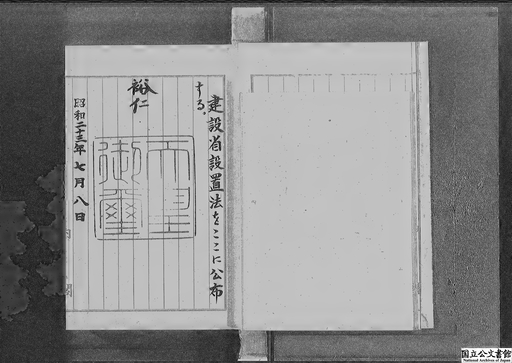 建設省設置法をここに公布
する。
裕仁
天皇
御璽
昭和二十三年七月八日
内閣
国立公文書館
National Archives of Japan